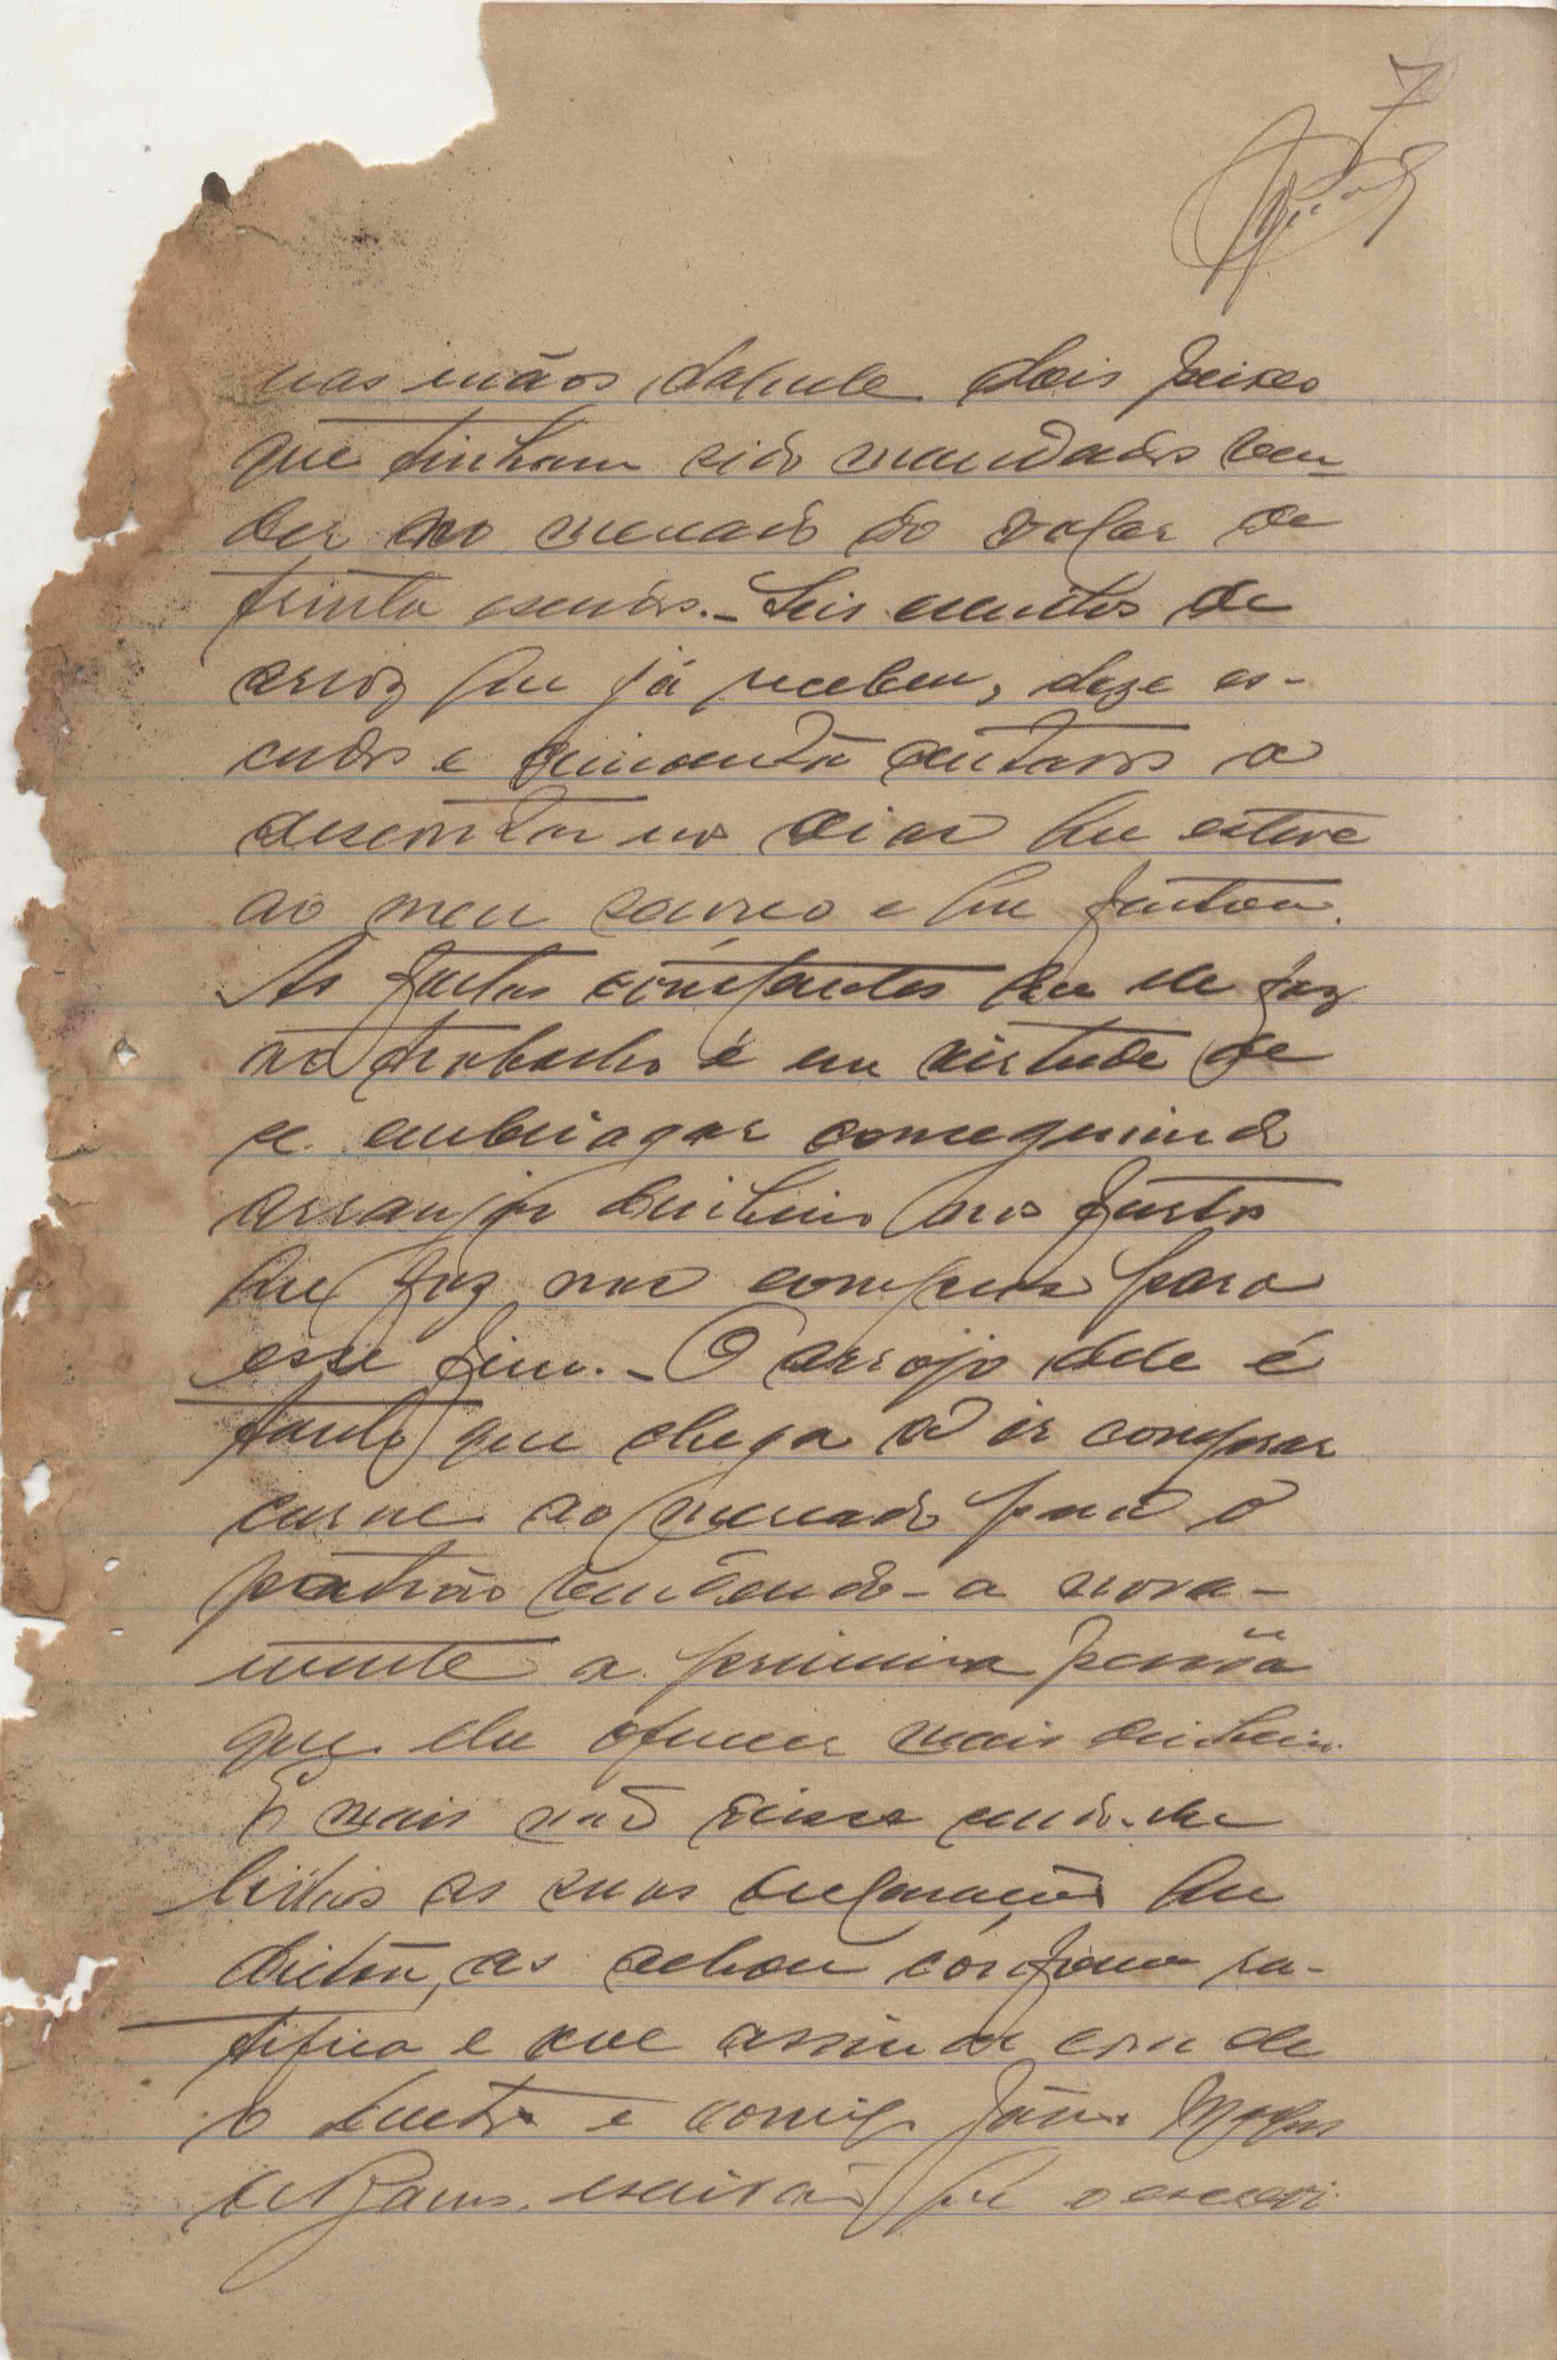 7
nas mãos daquele dois peixes
que tinham sido mandados ven-
der no mercado do valor de
trinta escudos. - Seis quilos de
arroz que já recebeu, doze es-
cudos e cincoenta centavos a
descontar nos dias que esteve
ao meu serviço e que faltou.
As faltas constantes que ele faz
ao trabalho é em virtude de
se embriagar conseguindo
arranjar dinheiro nos furtos
que faz nas compras para
esse fim. - O arrojo dele é
tanto que chega a ir comprar
carne ao mercado para o
patrão vendendo-a nova-
mente a primeira pessôa
que lhe oferecer mais dinheiro.
E mais não disse sendo-lhe
lidas as suas declarações que
dictou, as achou conforme ra-
tifica e vae assinar com ele
o e comigo
escrivão que o escrevi